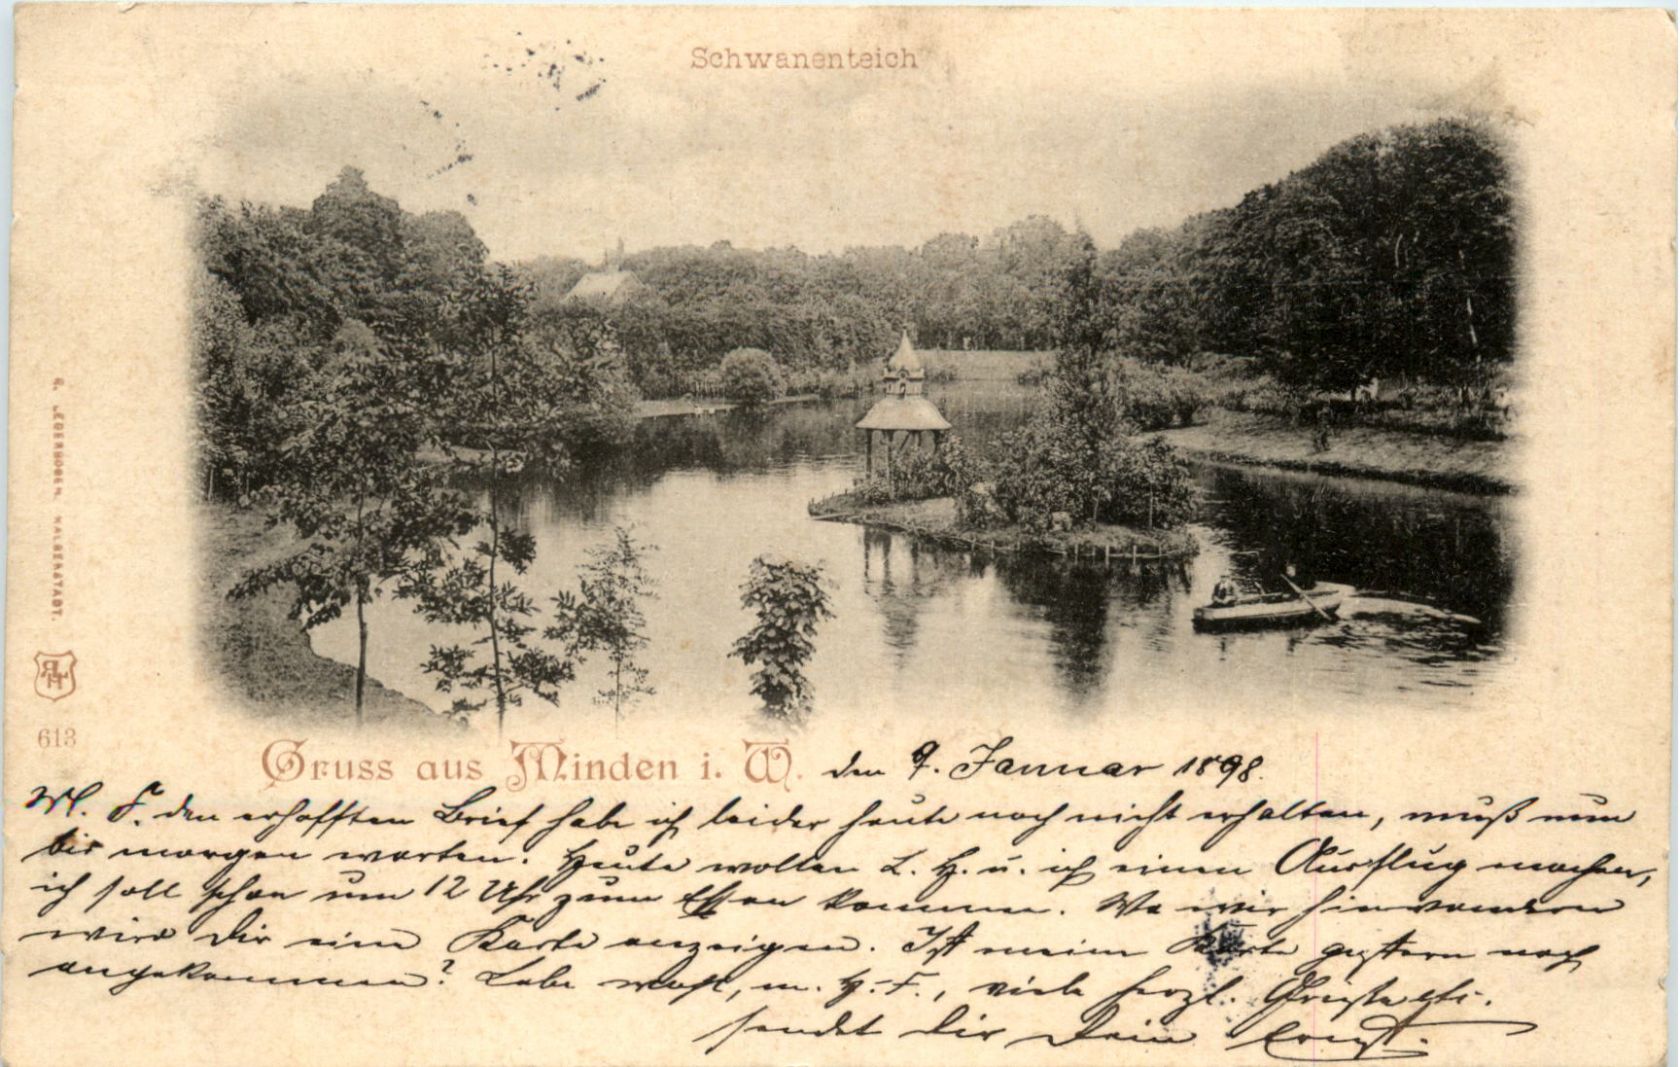 Schwanenteich
R. LEDERBOGEN, HALBERSTADT.
RLH
613
Gruss aus Minden i. W. den 9. Januar 1898.
M. F. den erhofften Brief habe ich leider heute noch nicht erhalten, muß nun
bis morgen warten. Heute wollen L. H. u. ich einen Ausflug machen,
ich soll schon um 12 Uhr zum Essen kommen. Wo wir hinwandern
wird Dir eine Karte anzeigen. Ist meine Karte gestern noch
angekommen? Lebe wohl, m. h. F., viele herzl. Grüße etc.
sendet Dir Dein Ernst.